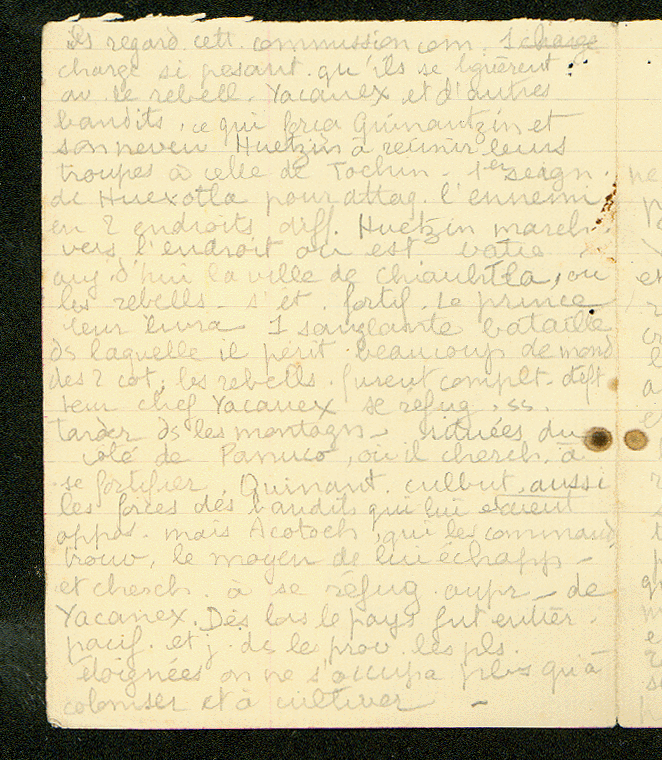 Ils regard. cett. commission com. 1 charge
charge si pesant. qu'ils se liguèrent
av. le rebell. Yacanex et d'autres
bandits, ce qui força Quinantzin et
son neveu Huetzin à réunir leurs
troupes à celle de Tochin. 1er seign.
de Huexotla pour attaq. l'ennemi
en 2 endroits diff. Huetzin march.
vers l'endroit où est bâtie
auj. d'hui la ville de Chiauhtla, où
les rebells. s'ét. fortif. Le prince
leur livra 1 sanglante bataille
ds laquelle il périt beaucoup de mond
des 2 cot. les rebells. furent complt. déft
leur chef Yacanex se réfug. ss.
tarder ds les montagn. situées du
côté de Panuco, où il cherch. à
se fortifier. Quinant. culbut. aussi
les forces des bandits qui lui étaient
oppos. mais Acotoch, qui les command
trouv. le moyen de lui échapp.
et cherch. à se réfug. aupr. de
Yacanex. Dès lors le pays fut entièr.
pacif. et j. ds les prov. les pls.
éloignées on ne s'occupa plus qu'à
coloniser et à cultiver